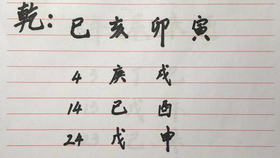 乾：巳亥卯寅
4 庚戌
14 己酉
24 戊申